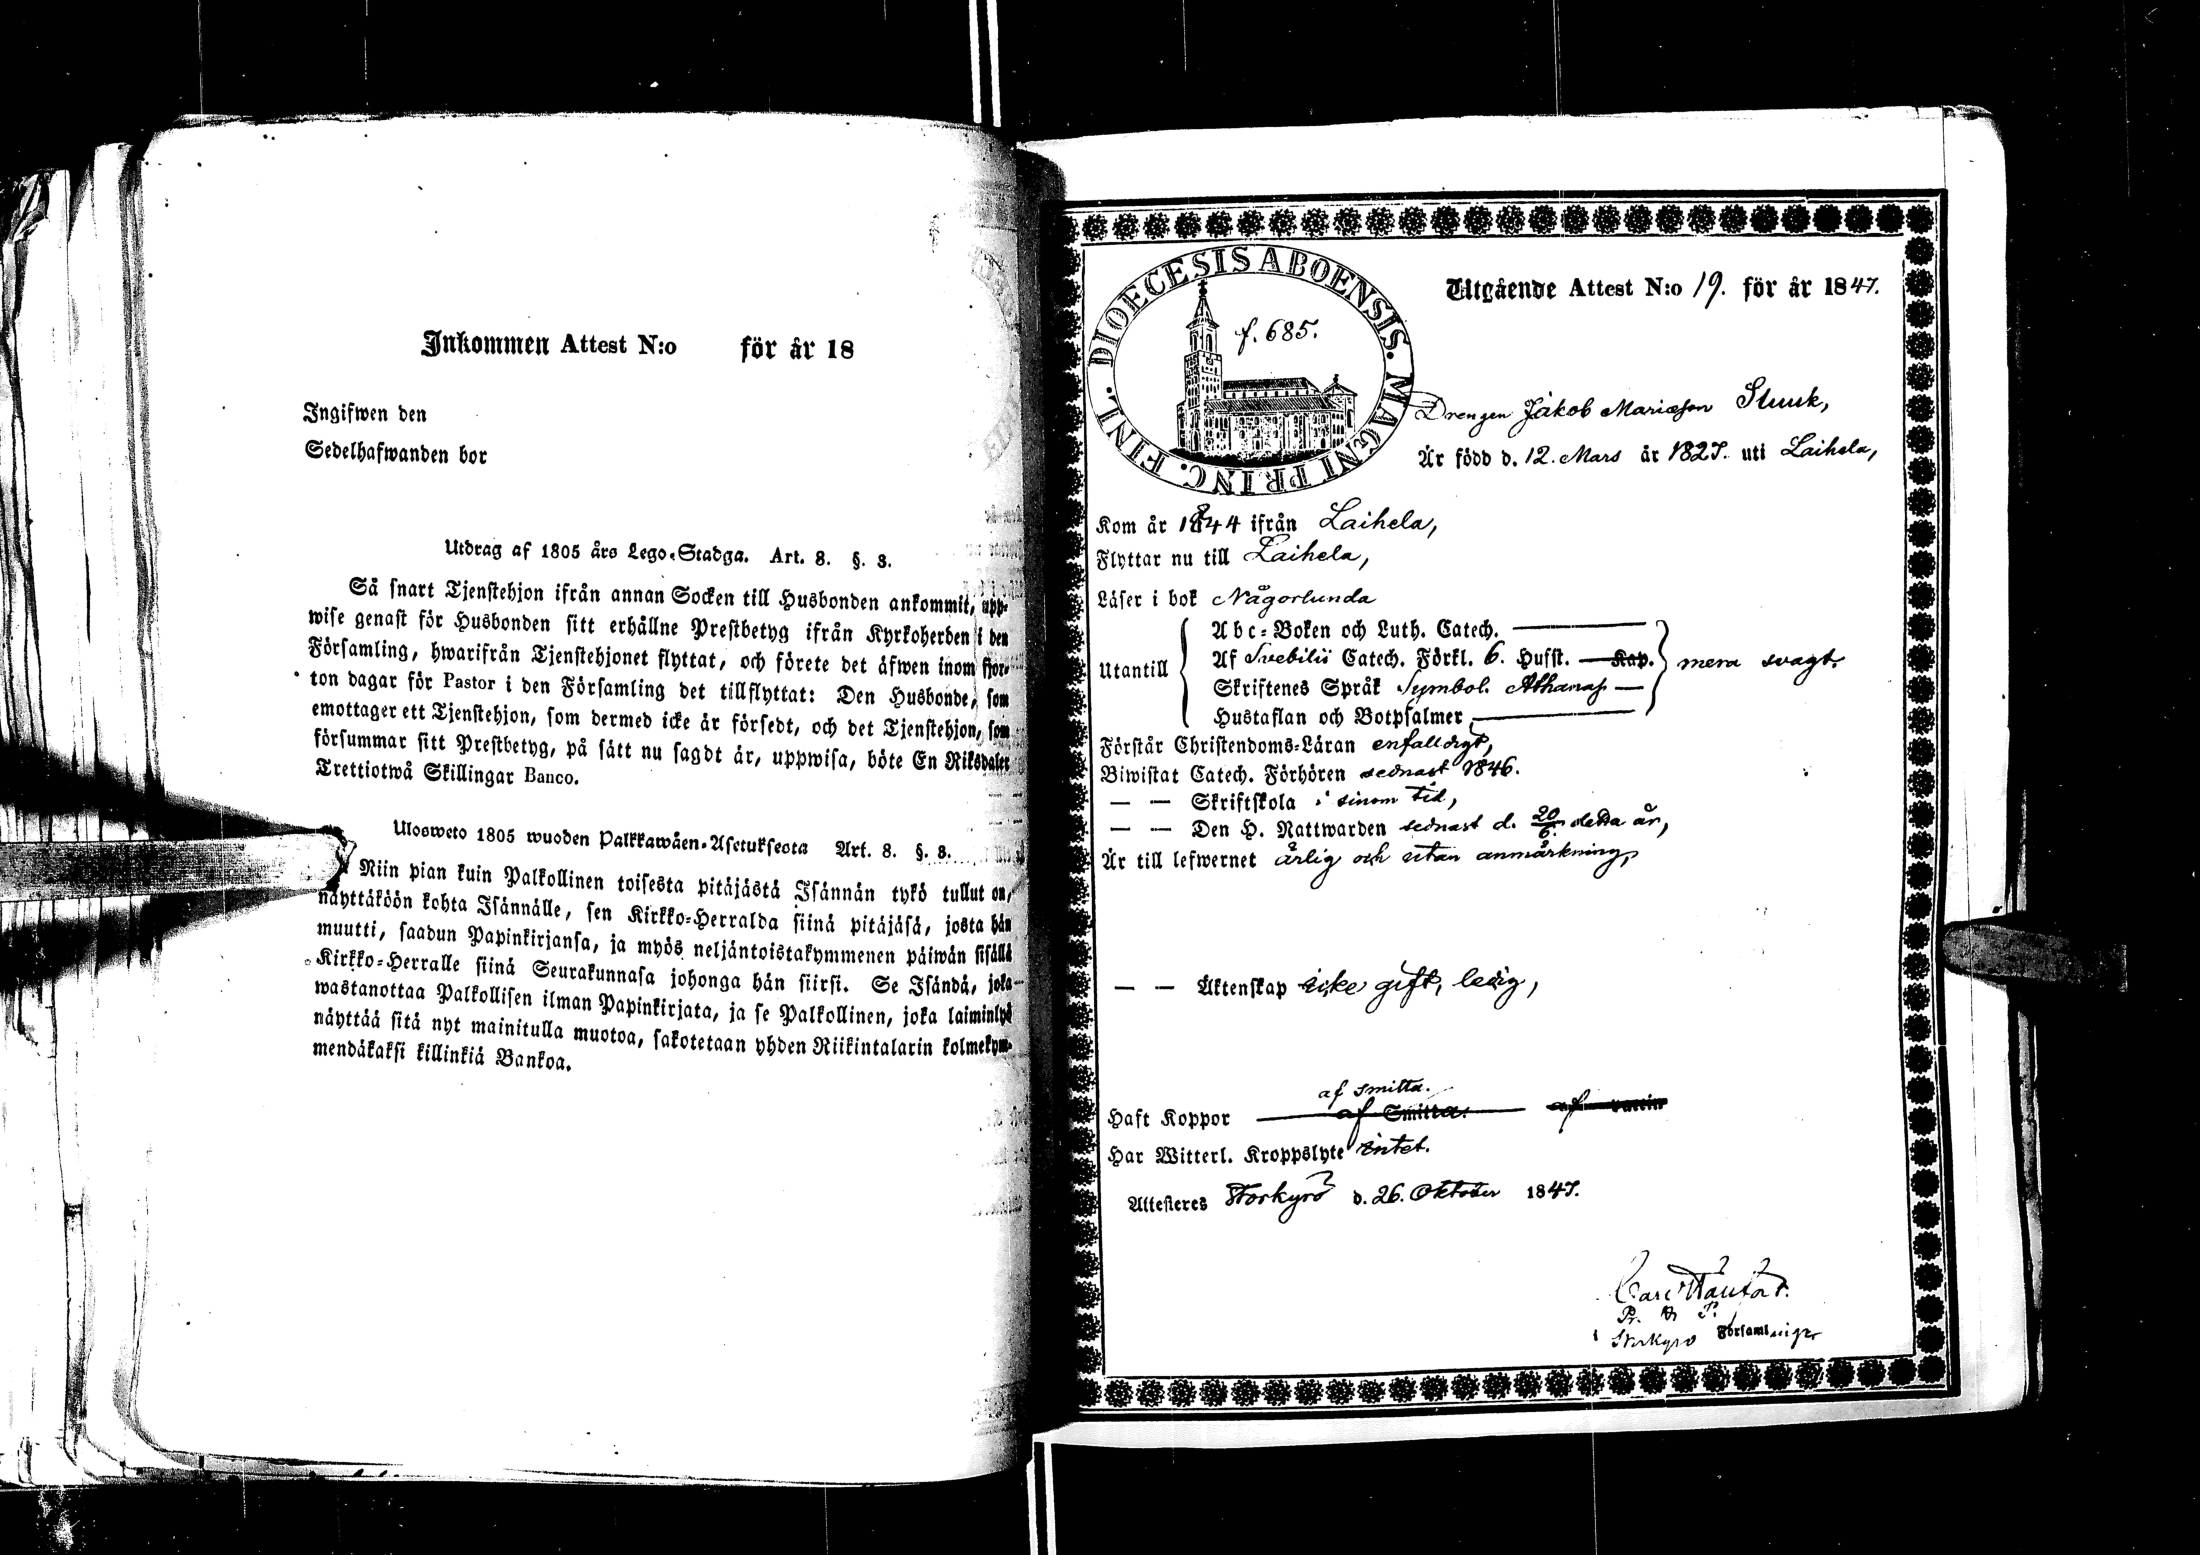 Inkommen Attest N:o för år 18
Ingifwen den
Sedelhafwanden bor
Utdrag af 1805 års Lego-Stadga. Art. 8. §. 3.
Så snart Tjenstehjon ifrån annan Socken till Husbonden ankommit, upp-
wise genast för Husbonden sitt erhållne Prestbetyg ifrån Kyrkoherden i den
Församling, hwarifrån Tjenstehjonet flyttat, och förete det äfwen inom fjor-
ton dagar för Pastor i den Församling det tillflyttat: Den Husbonde, som
emottager ett Tjenstehjon, som dermed icke är försedt, och det Tjenstehjon, som
försummar sitt Prestbetyg, på sätt nu sagdt är, uppwisa, böte En Riksdaler
Trettiotwå Skillingar Banco.
Ulosweto 1805 wuoden Palkkawäen-Asetuksesta Art. 8. §. 3.
Niin pian kuin Palkollinen toisesta pitäjästä Isännän tykö tullut on,
näyttäköön kohta Isännälle, sen Kirkko-Herralda siinä pitäjäsä, josta hän
muutti, saadun Papinkirjansa, ja myös neljäntoistakymmenen päiwän sisällä
Kirkko-Herralle siinä Seurakunnasa johonga hän siirsi. Se Isändä, joka
wastanottaa Palkollisen ilman Papinkirjata, ja se Palkollinen, joka laiminlyö
näyttää sitä nyt mainitulla muotoa, sakotetaan yhden Riikintalarin kolmekym-
mendäkaksi killinkiä Bankoa.
DIOECESIS ABOENSIS. MAGNI PRINC. FINL.
f. 685.
Utgående Attest N:o 19. för år 1847.
Drengen Jakob Mariæson Stuuk,
Är född d. 12. Mars år 1827. uti Laihela,
Kom år 1844 ifrån Laihela,
Flyttar nu till Laihela,
Läser i bok Någorlunda
Utantill
Abc-Boken och Luth. Catech.
Af Svebilii Catech. Förkl. 6. Hufst. Kap.
Skriftenes Språk Symbol. Athanas.
Hustaflan och Botpsalmer,
mera svagt.
Förstår Christendoms-Läran enfalldigt,
Biwistat Catech. Förhören sednast 1846.
— — Skriftskola i sinom tid,
— — Den H. Nattwarden sednast d. 20/6. detta år,
Är till lefwernet ärlig och utan anmärkning,
— — Äktenskap icke gift, ledig,
af smitta.
Haft Koppor af Smitta. af vaccin
Har Witterl. Kroppslyte intet.
Attesteres Storkyro d. 26. Oktober 1847.
Carl
P.
Storkyro Församlings